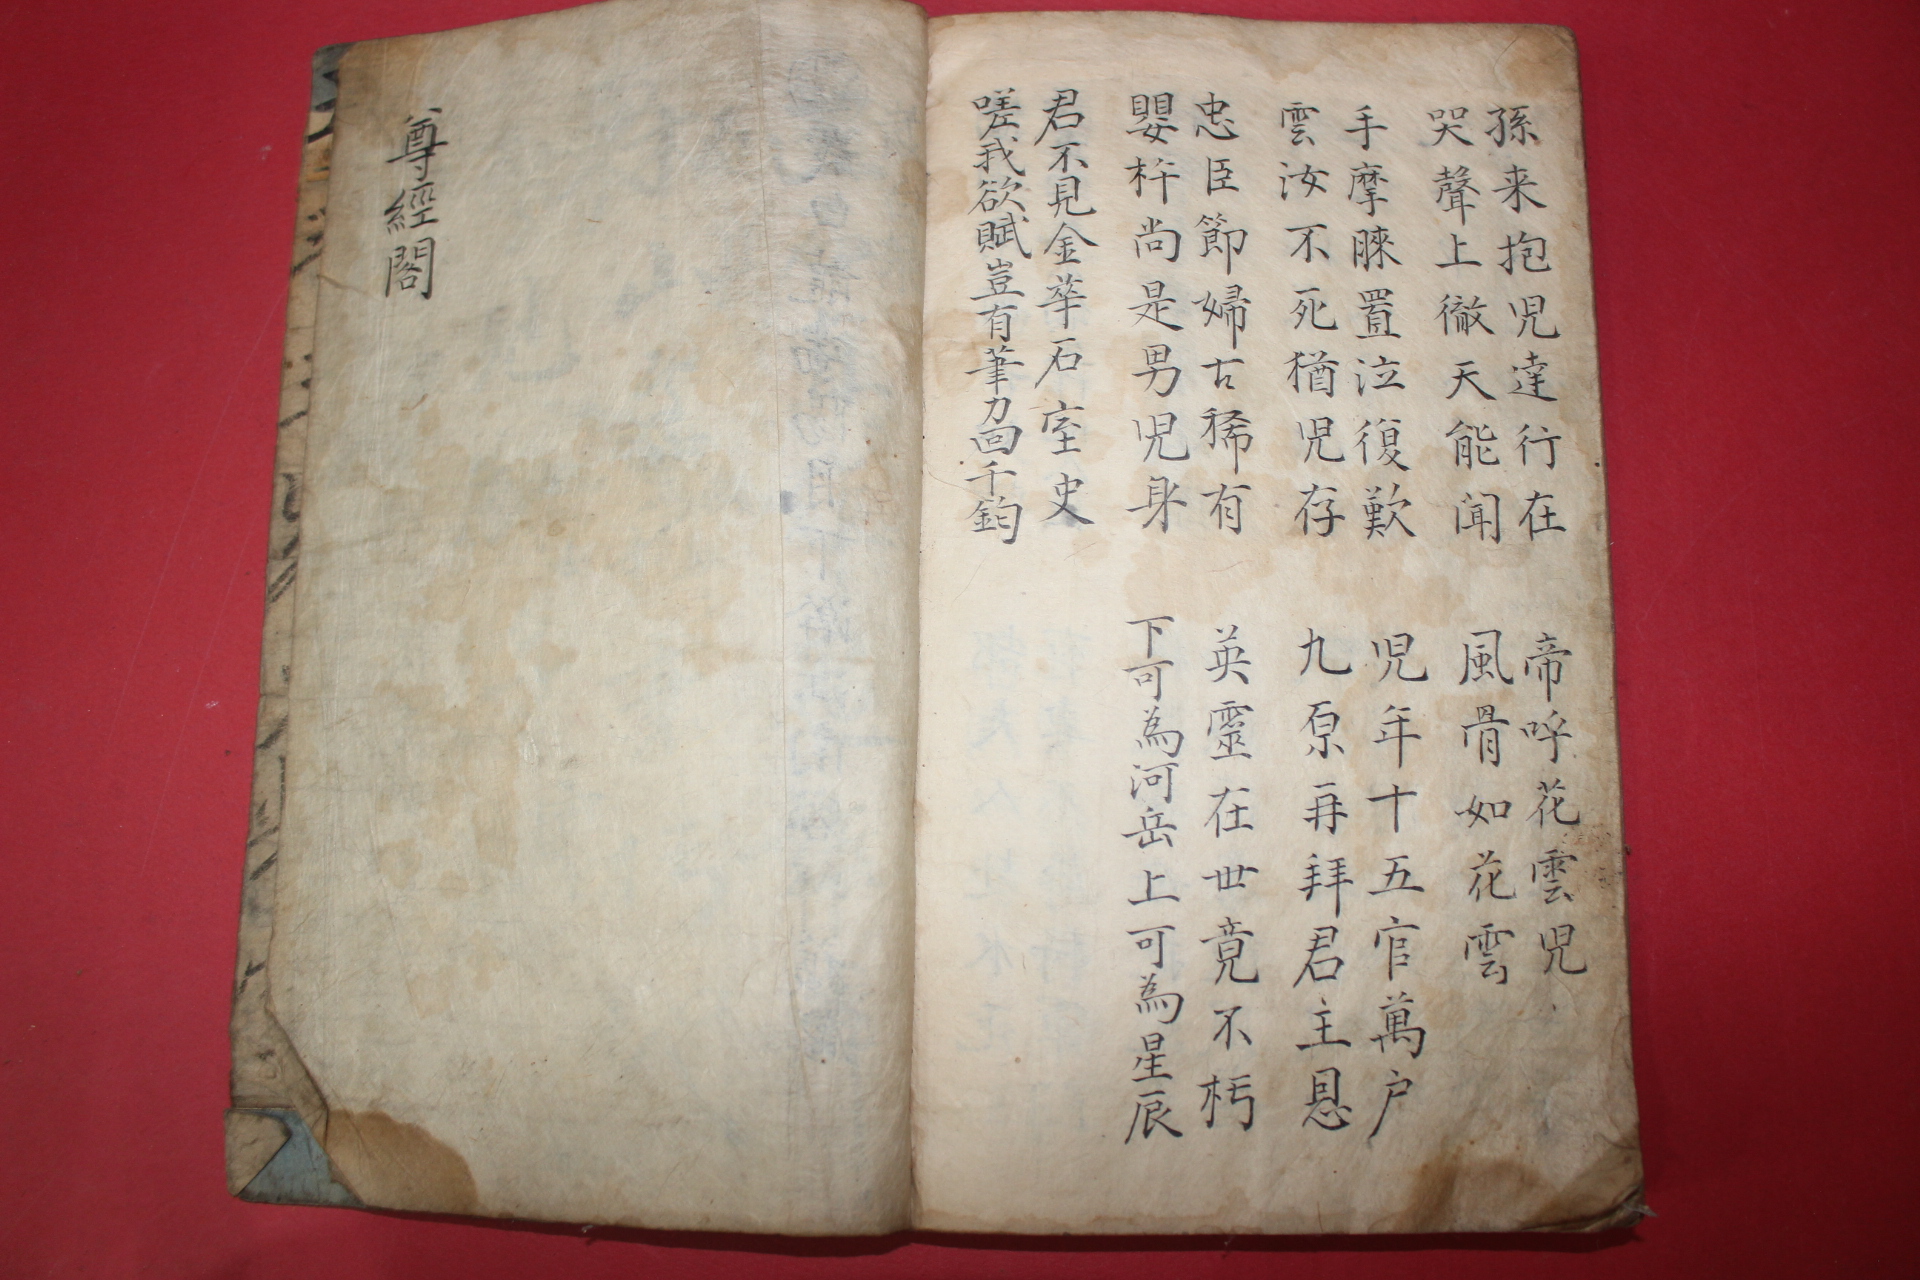 孫来抱児達行在
帝呼花雲児
哭聲上徹天能聞
風骨如花雲
手摩膝置泣復歎
児年十五官萬户
雲汝不死猶児存
九原再拜君主恩
忠臣節婦古稀有
英靈在世竟不朽
嬰杵尚是男児身
下可為河岳上可為星辰
君不見金華石室史
嗟我欲賦豈有筆力回千鈞
尊經閣